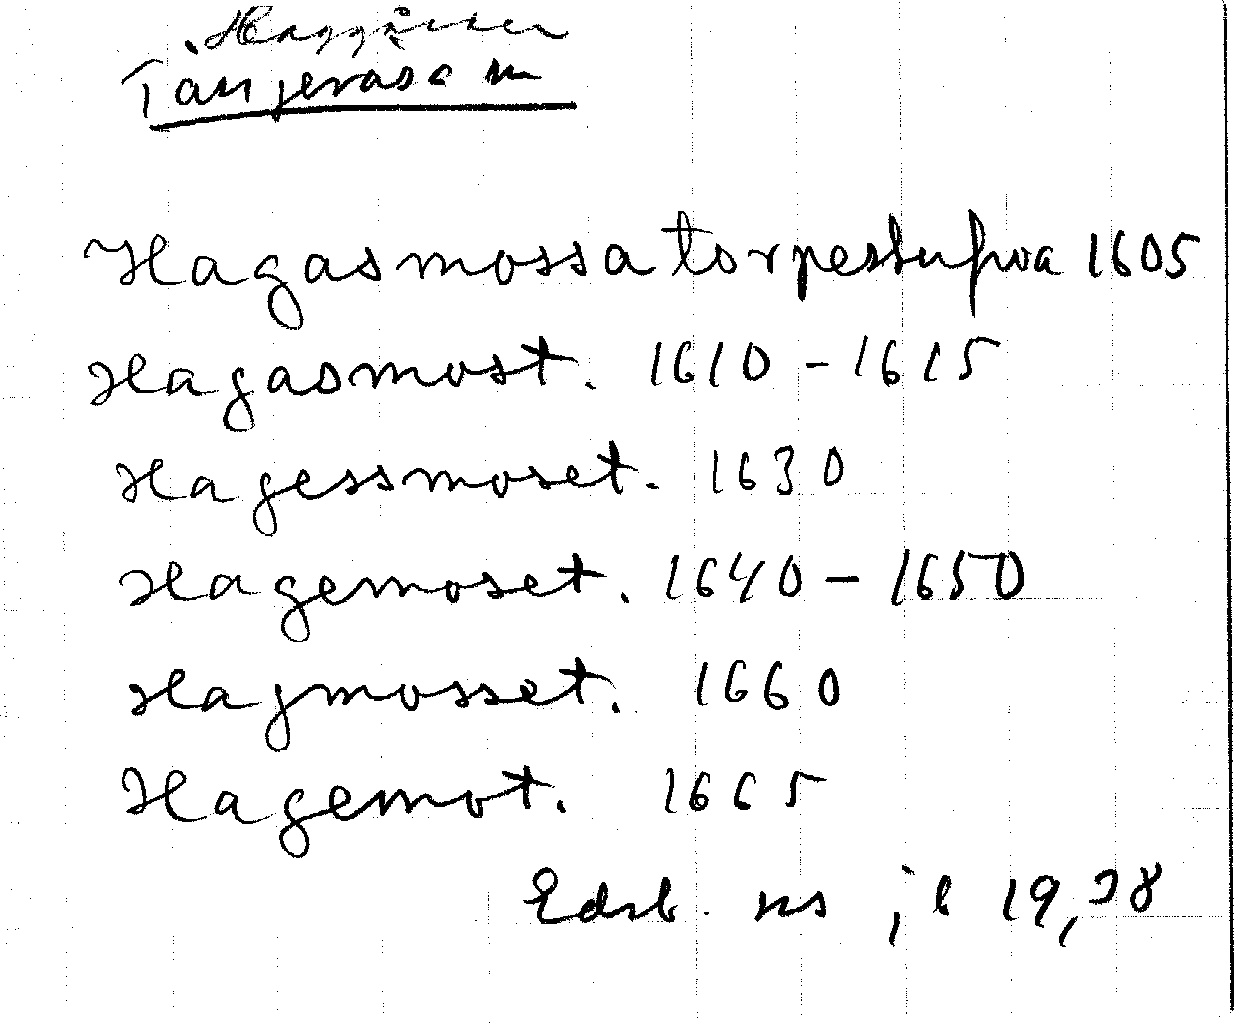 Tanjeråsen
Hagasmossatorpestufva 1605
Hagasmost. 1610 - 1615
Hagessmoset. 1630
Hagemoset. 1640 - 1650
Hajmosset. 1660
Hagemot. 1665
Edsb. ns 19, 38